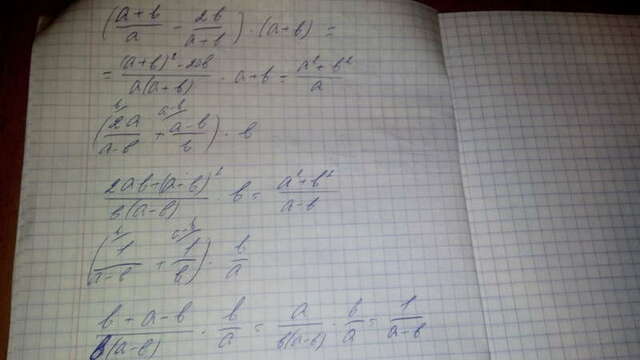 ((a+b)/a - 2b/(a+b)) · (a+b) =
= ((a+b)² - 2ab)/(a(a+b)) · a+b = (a²+b²)/a
(2a/(a-b) + (a-b)/b) · b
(2ab+(a-b)²)/(b(a-b)) · b = (a²+b²)/(a-b)
(1/(a-b) + 1/b) · b/a
(b+a-b)/(b(a-b)) · b/a = a/(b(a-b)) · b/a = 1/(a-b)